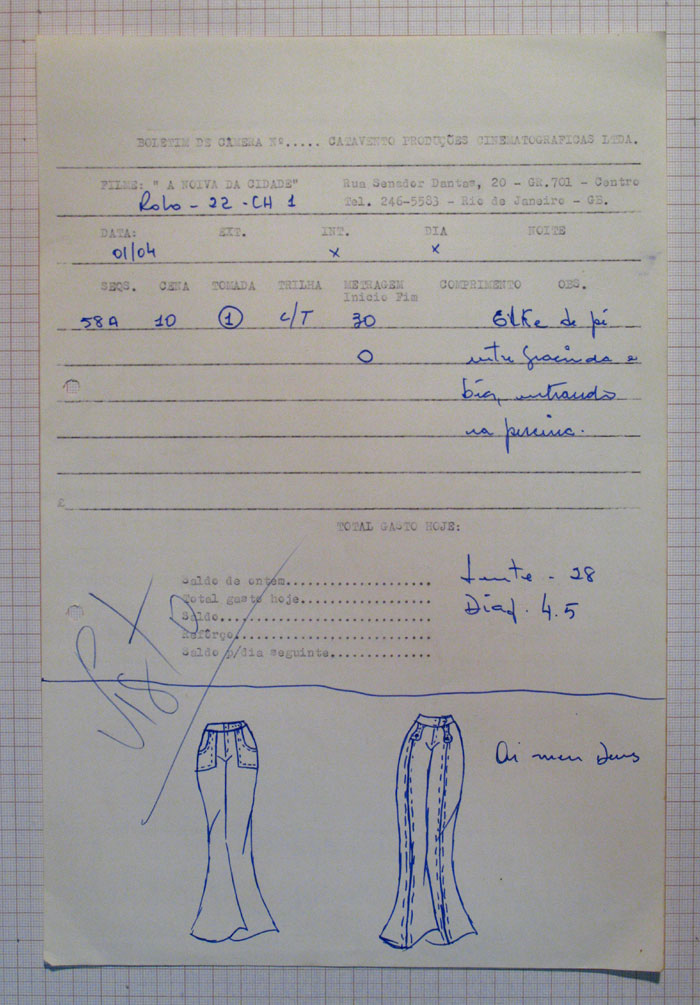 BOLETIM DE CÂMERA Nº..... CATAVENTO PRODUÇÕES CINEMATOGRAFICAS LTDA.
FILME: " A NOIVA DA CIDADE" Rua Senador Dantas, 20 - GR.701 - Centro
Rolo - 22 - CH 1 Tel. 246-5583 - Rio de Janeiro - GB.
DATA: EXT. INT. DIA NOITE
01/04 x x
SEQS. CENA TOMADA TRILHA METRAGEM COMPRIMENTO OBS.
Inicio Fim
58A 10 1 c/T 30 Elke de pé
0 entre Gracinda e
bia, entrando
na piscina.
TOTAL GASTO HOJE:
Saldo de ontem...................... Lente - 28
Total gasto hoje.................... Diaf. 4.5
Saldo...............................
Refôrço.............................
Saldo p/dia seguinte..............
VISTO
Ai meu Deus